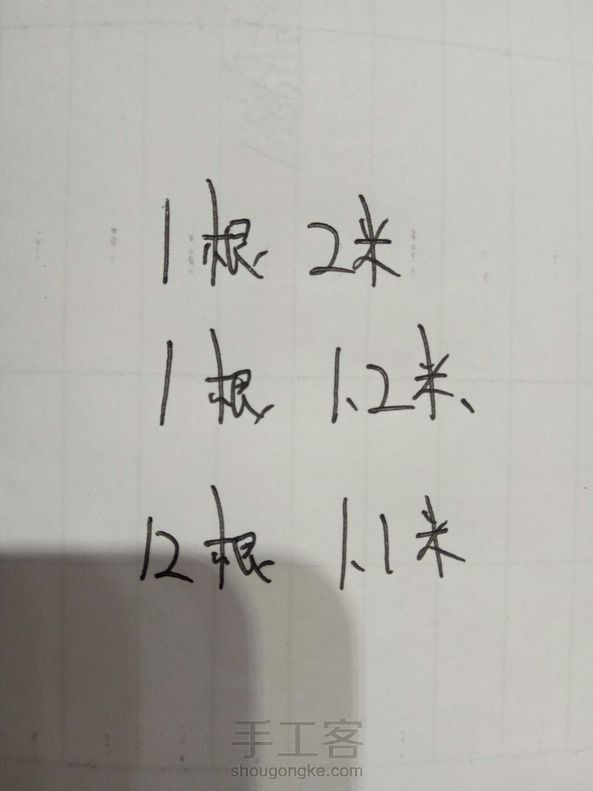 1根 2米
1根 1.2米、
12根 1.1米
手工客
shougongke.com